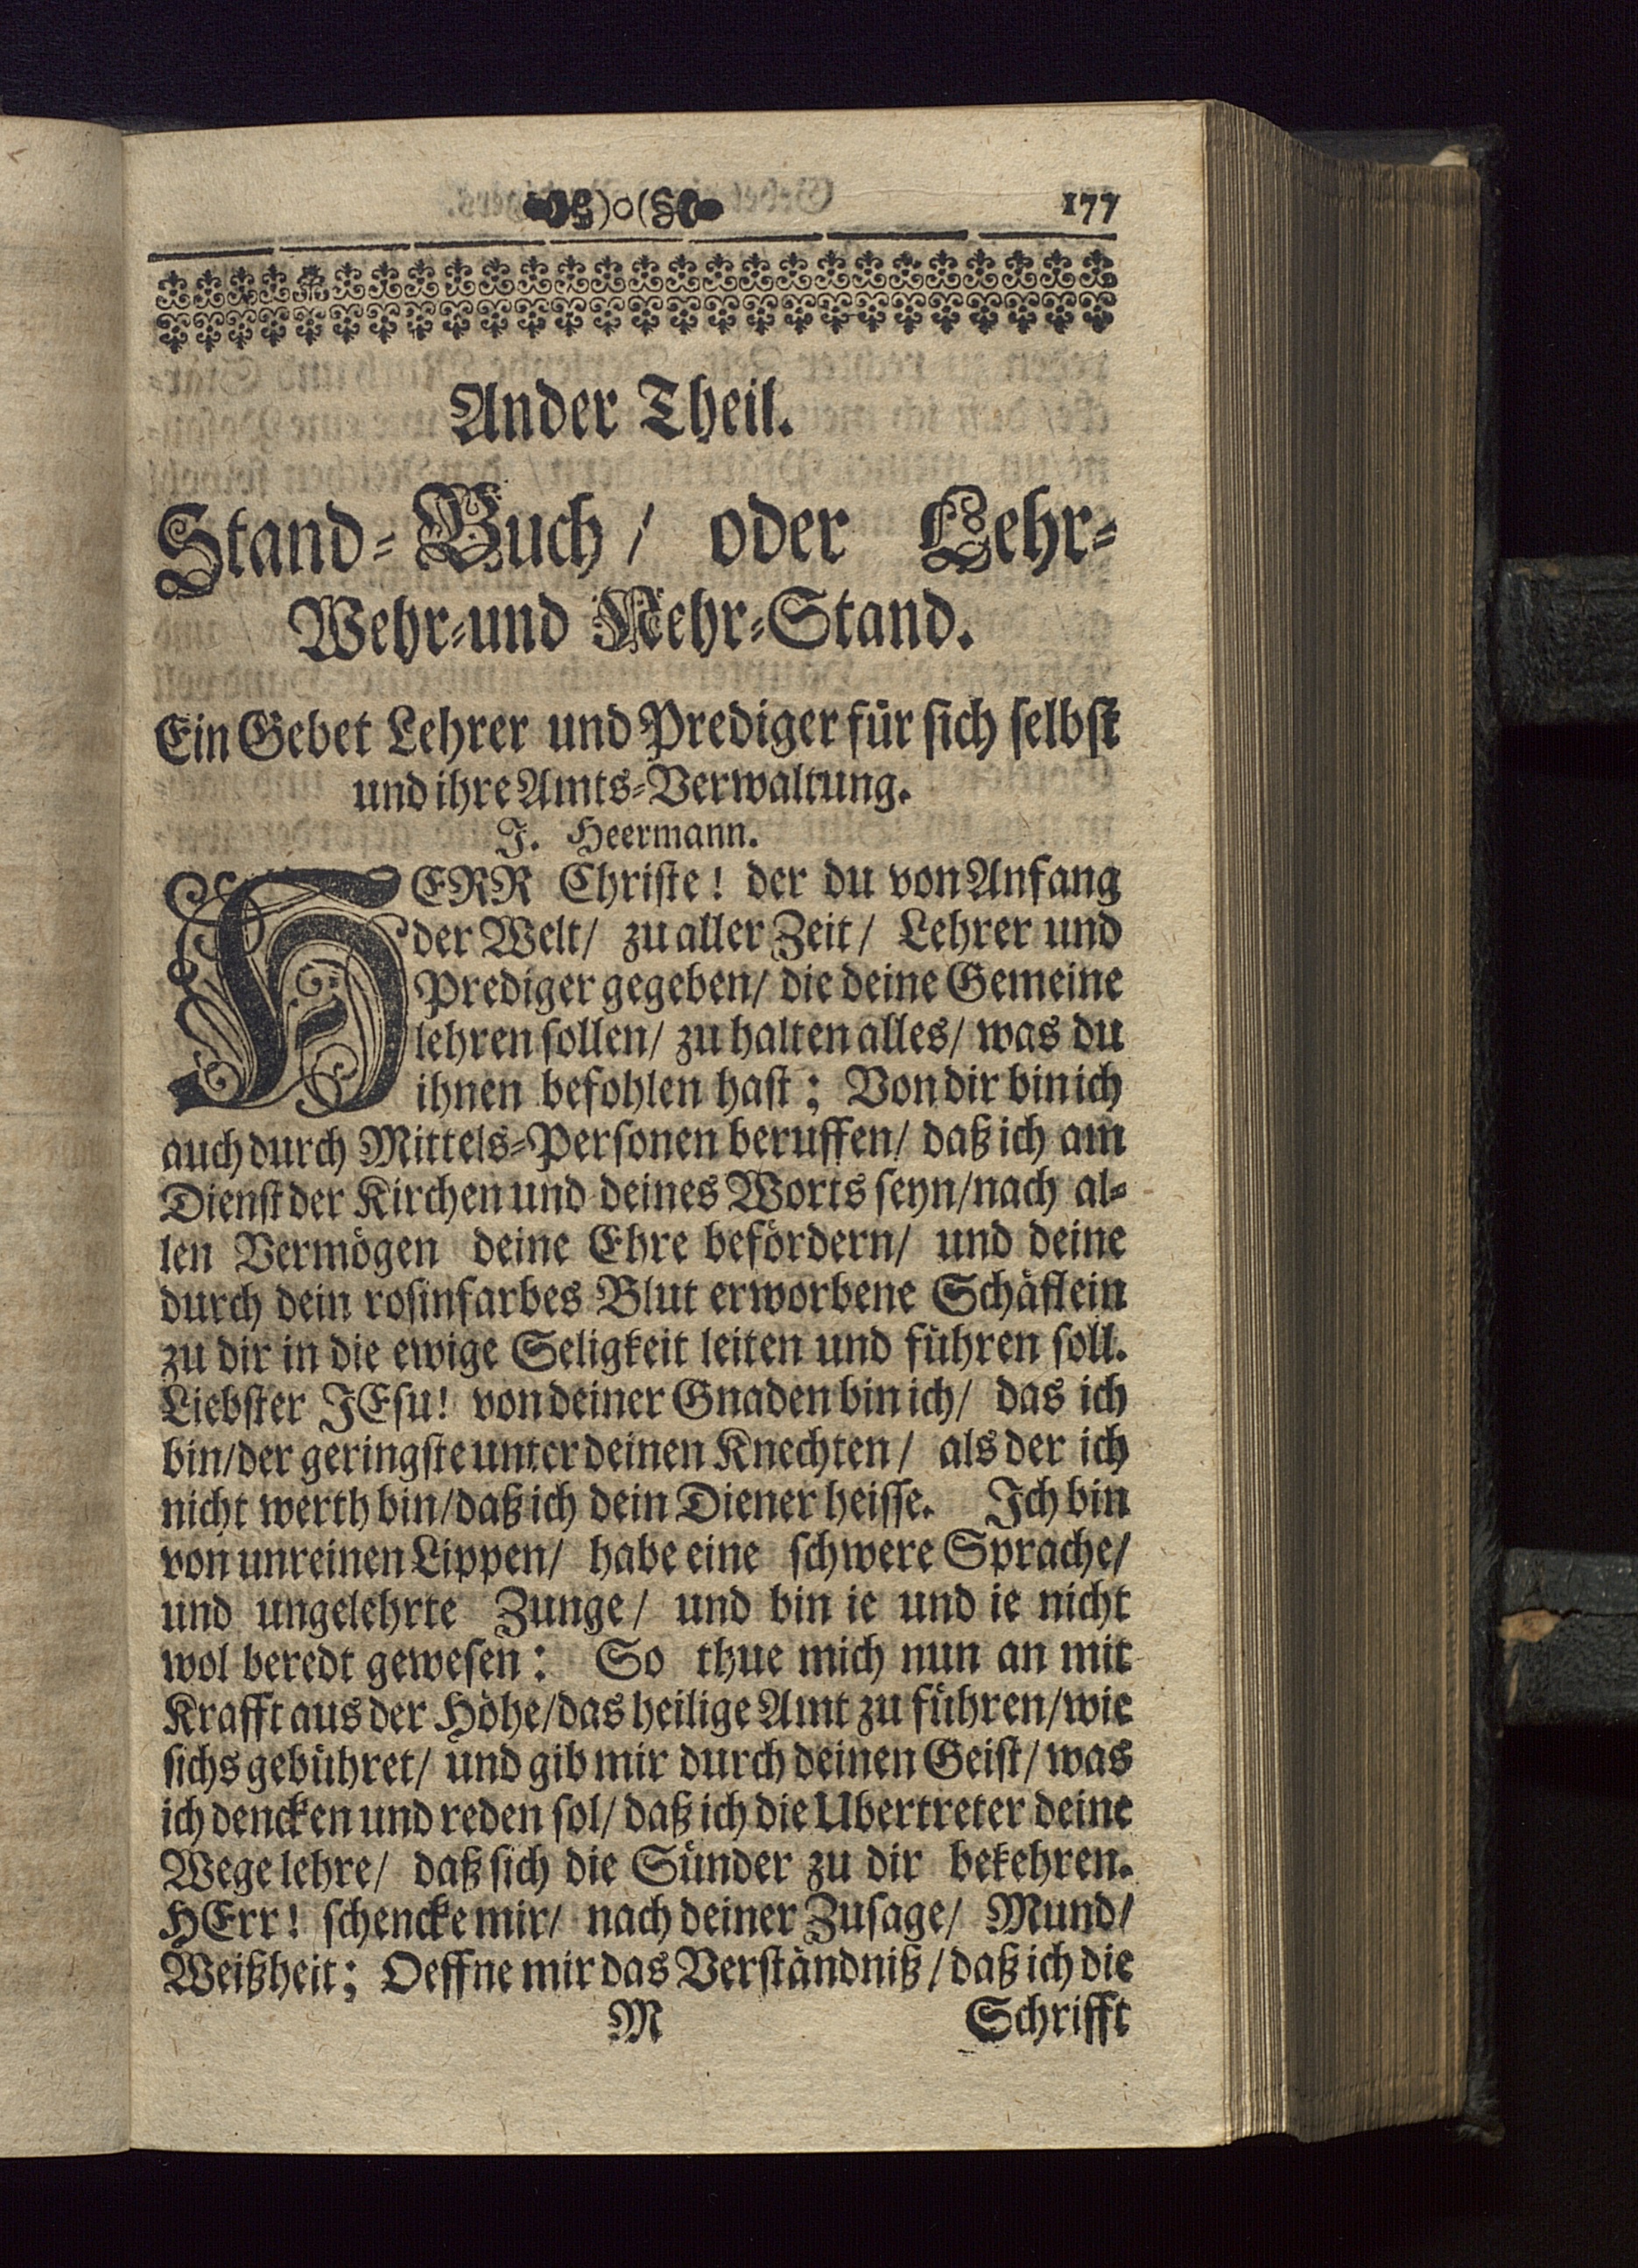 )o( 177
Ander Theil.
Stand-Buch/ oder Lehr-
Wehr-und Nehr-Stand.
Ein Gebet Lehrer und Prediger für sich selbst
und ihre Amts-Verwaltung.
J. Heermann.
HERR Christe! der du von Anfang
der Welt/ zu aller Zeit/ Lehrer und
Prediger gegeben/ die deine Gemeine
lehren sollen/ zu halten alles/ was du
ihnen befohlen hast; Von dir bin ich
auch durch Mittels-Personen beruffen/ daß ich am
Dienst der Kirchen und deines Worts seyn/nach al-
len Vermögen deine Ehre befördern/ und deine
durch dein rosinfarbes Blut erworbene Schäflein
zu dir in die ewige Seligkeit leiten und führen soll.
Liebster JEsu! von deiner Gnaden bin ich/ das ich
bin/der geringste unter deinen Knechten/ als der ich
nicht werth bin/daß ich dein Diener heisse. Ich bin
von unreinen Lippen/ habe eine schwere Sprache/
und ungelehrte Zunge/ und bin ie und ie nicht
wol beredt gewesen: So thue mich nun an mit
Krafft aus der Höhe/das heilige Amt zu führen/wie
sichs gebühret/ und gib mir durch deinen Geist/ was
ich dencken und reden sol/ daß ich die Ubertreter deine
Wege lehre/ daß sich die Sünder zu dir bekehren.
HErr! schencke mir/ nach deiner Zusage/ Mund/
Weißheit; Oeffne mir das Verständniß/ daß ich die
M Schrifft